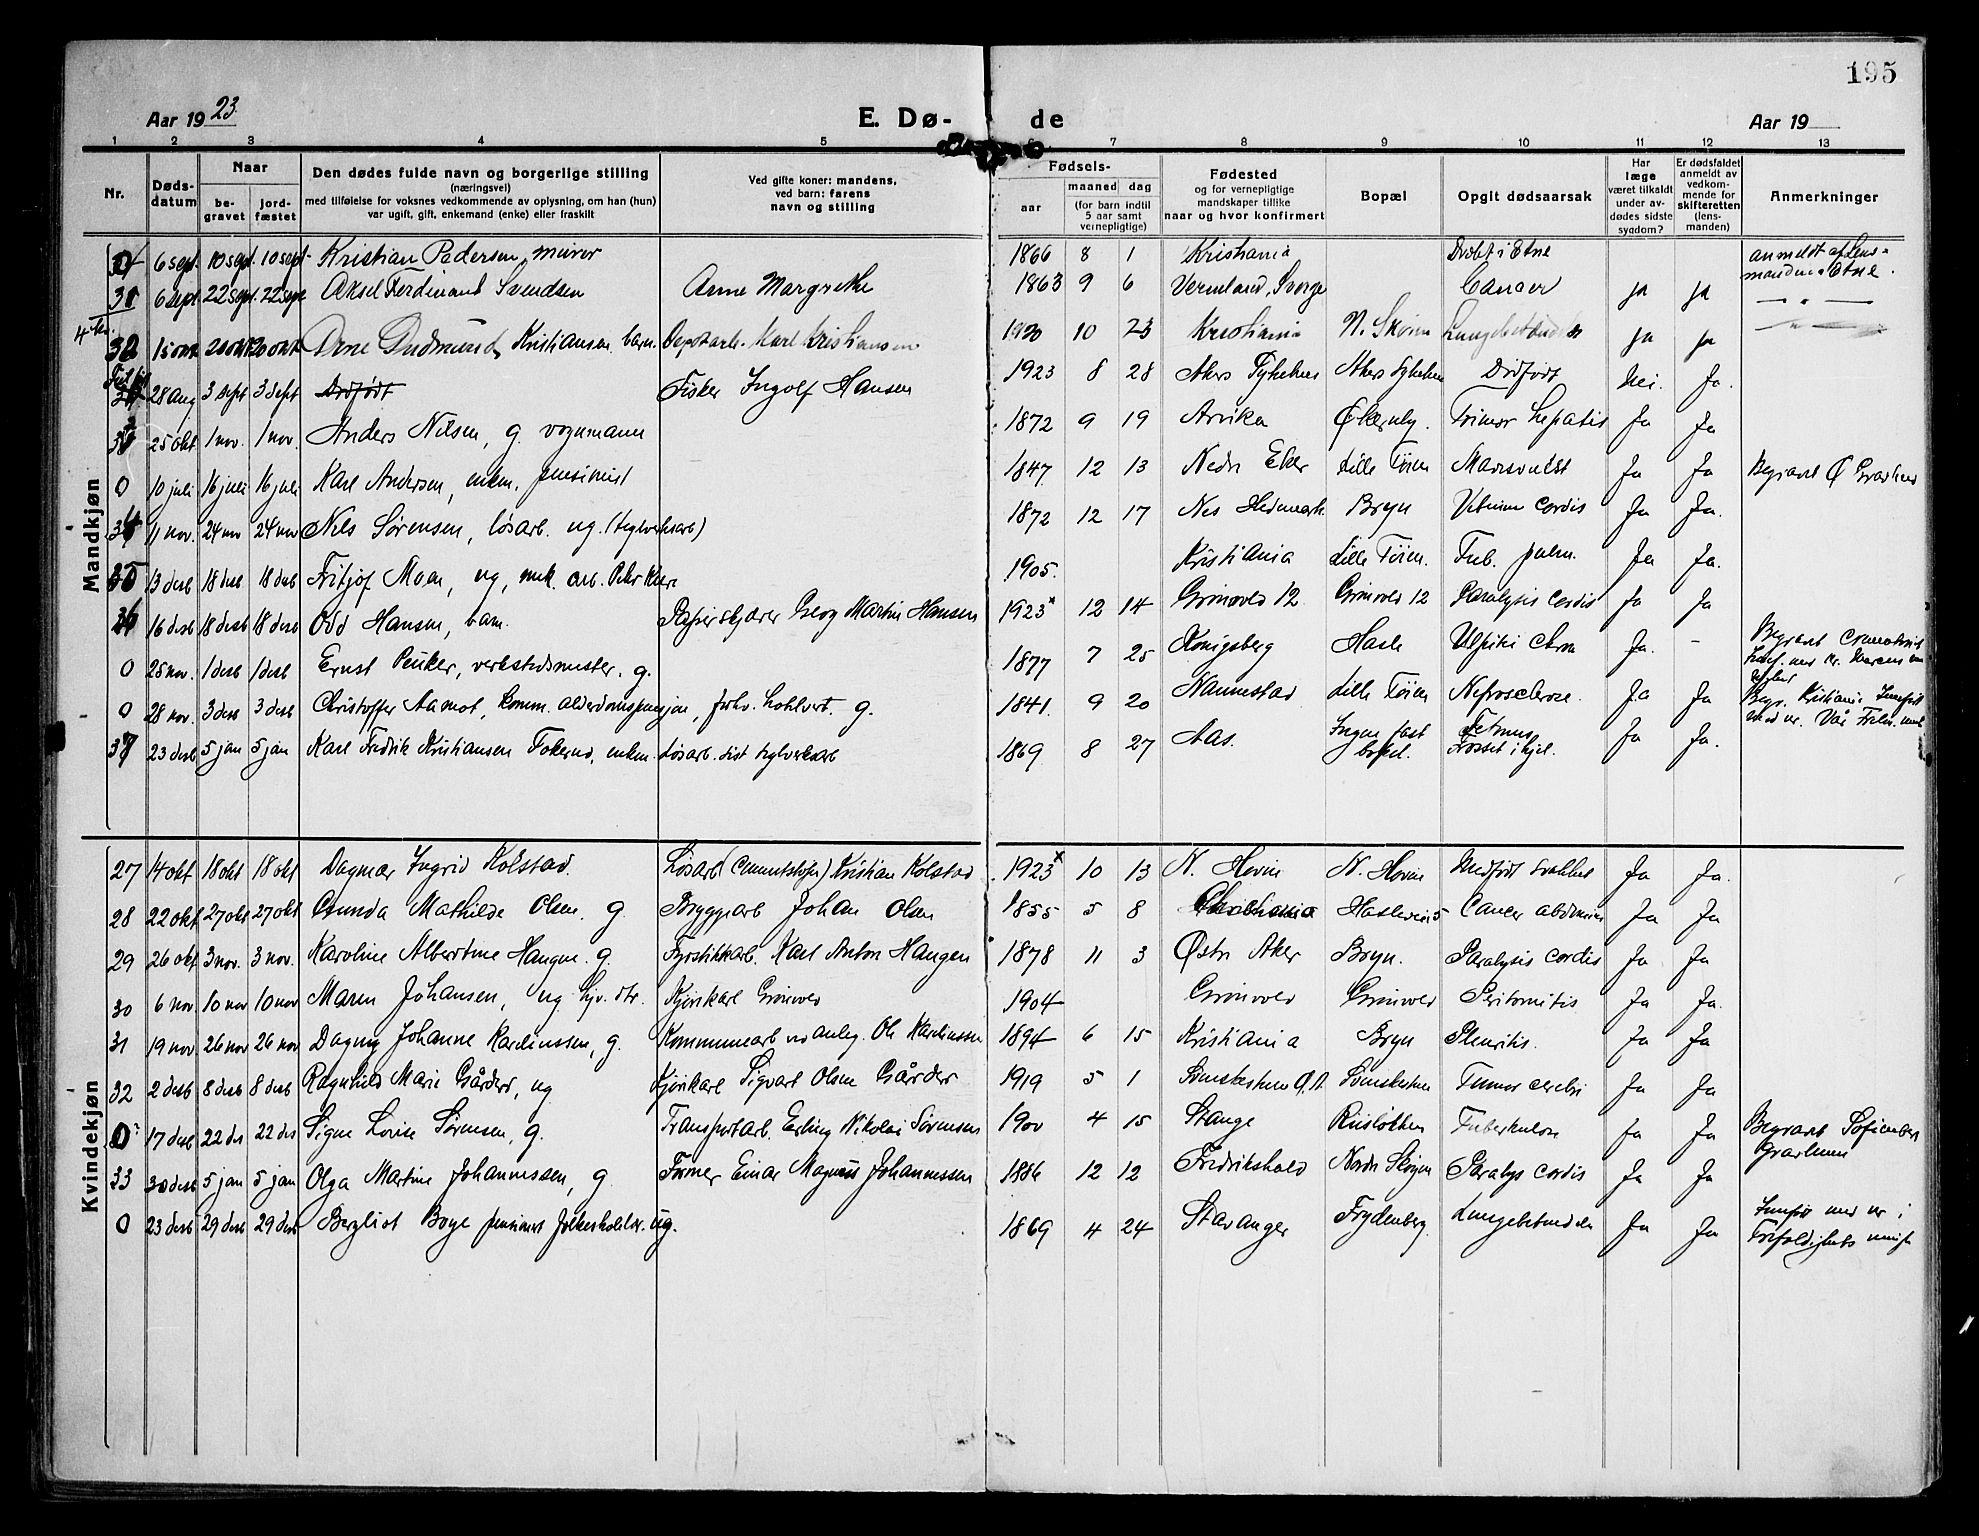 195
Aar 1923
E. Dø- de
Aar 19
1 2 3 4 5 6 7 8 9 10 11 12 13
Nr.
Døds-datum
Naar
be-gravet
jord-fæstet
Den dødes fulde navn og borgerlige stilling
(næringsvei)
med tilføielse for voksnes vedkommende av oplysning, om han (hun)
var ugift, gift, enkemand (enke) eller fraskilt
Ved gifte koner: mandens,
ved barn: farens
navn og stilling
Fødsels-
aar
maaned dag
(for barn indtil
5 aar samt
vernepligtige)
Fødested
og for vernepligtige
mandskaper tillike
naar og hvor konfirmert
Bopæl
Opgit dødsaarsak
Har
læge
været tilkaldt
under av-
dødes sidste
sygdom?
Er dødsfaldet
anmeldt av
vedkom-
mende for
skifteretten
(lens-
manden)
Anmerkninger
Mandkjøn
6 sept. 10 sept. 10 sept. Kristian Pedersen, murer 1866 8 1 Kristiania Dræbt i Etne anmeldt af Lens-
manden i Etne.
31 6 sept 22 sept. 22 sept Aksel Ferdinand Svendsen Anne Margrethe 1863 9 6 Vermland, Sverge Cancer ja ja — " —
32 15 okt 20 okt 20 okt Arne Gudmund Kristiansen barn. Karl Kristiansen 1920 10 23 Kristiania N. Skøien ja ja — " —
28 aug 3 sept 3 sept Dødfødt Fisker Ingolf Hansen 1923 8 28 Akers Sykehus Akers Sykehus Dødfødt Nei. Ja.
33 25 okt 1 nov. 1 nov. Anders Nilsen, g. vognmann 1872 9 19 Arvika Økernby. Tumor hepatis Ja Ja
0 10 juli 16 juli 16 juli Karl Andersen, enkm. pensionist 1847 12 13 Nedre Eker Lille Tøien Mavesvulst Ja Ja Begravet Ø Gravlund
34 11 nov. 24 nov 24 nov Nils Sørensen, løsarb. ug. (teglverksarb) 1872 12 17 Nes Hedemark Bryn Vitium cordis Ja Ja.
35 13 desb 18 desb 18 desb Fritjof Moen, ug, mek. arb. 1905. Kristiania Lille Tøien. Tub. pulm. Ja Ja.
36 16 desb 18 desb 18 desb Odd Hansen, barn. Papirskjærer Georg Martin Hansen 1923x 12 14 Grønvold 12 Grønvold 12 Paralysis cordis Ja Ja
0 25 nov. 1 desb 1 desb Ernst Peuker, verkstedsmester. g. 1877 7 25 Königsberg Hasle Ja. – Begravet
0 28 nov. 3 desb 3 desb Christoffer Aamot, komm. alderdomspensjon, g. 1841. 9 20 Nannestad Lille Tøien Nefrosclerose. Ja Ja Begr. Kristiania
med nr. Vår Frels.
37 23 desb 5 jan 5 jan Karl Fredrik Kristiansen Tokerud, enkm. Løsarb. sist teglverksarb 1869 8 27 Aas. Ingen fast
bopel. Frosset ihjel. Ja Ja.
Kvindekjøn
27 14 okt 18 okt 18 okt Dagmar Ingrid Kolstad. Løsarb (Cementstøper) Kristian Kolstad 1923x 10 13 N. Hovin N. Hovin Medfødt svakhet Ja Ja.
28 22 okt 27 okt 27 okt Gunda Mathilde Olsen. g. Bryggearb Johan Olsen 1855 5 8 Christiania Haslevein 5 Cancer abdominis Ja Ja
29 26 okt 3 nov. 3 nov. Karoline Albertine Haugen. g. Fyrstikkarb. Karl Anton Haugen 1878 11 3 Østre Aker Bryn. Paralysis cordis Ja Ja
30 6 nov 10 nov 10 nov Maren Johansen, ug hjv. dtr. Kjørekarl Grønvold 1904 Grønvold Grønvold Peritonitis Ja Ja.
31 19 nov 26 nov 26 nov Dagny Johanne Karlinssen, g. Kommunearb ved anleg. Ole Karlinssen 1894 6 15 Kristiania Bryn Pleuritis. Ja Ja
32 2 desb 8 desb 8 desb Ragnhild Marie Gårder, ug Kjørekarl Sigvart Olsen Gårder 1919 5 1 Svenskestuen Ø.A. Svenskestuen Tumor cerebri Ja Ja
0 17 desb 22 des 22 des Signe Lovise Sørensen, g. Transportarb. Erling Nikolai Sørensen 1900 4 15 Stange Risløkken Tuberkulose Ja Ja Begravet Sofienberg
Gravlund
33 30 desb 5 jan 5 jan Olga Martine Johannessen, g. Former Einar Magnus Johannessen 1886 12 12 Fredrikshald Nordre Skøyen Paralys cordis Ja Ja
0 23 desb 29 desb 29 desb Bergliot Boye pensionert folkeskolelær. ug. 1869 4 24 Stavanger Frydenberg. Lungebetendelse Ja Ja Innført med nr i
Trefoldighets menigh